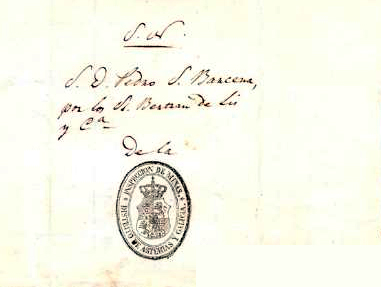 S. N.
S. D. Pedro S. Barcena,
por los S. Bertran de Lis
y Cª
De la
INSPECCION DE MINAS
DE ASTURIAS Y GALICIA